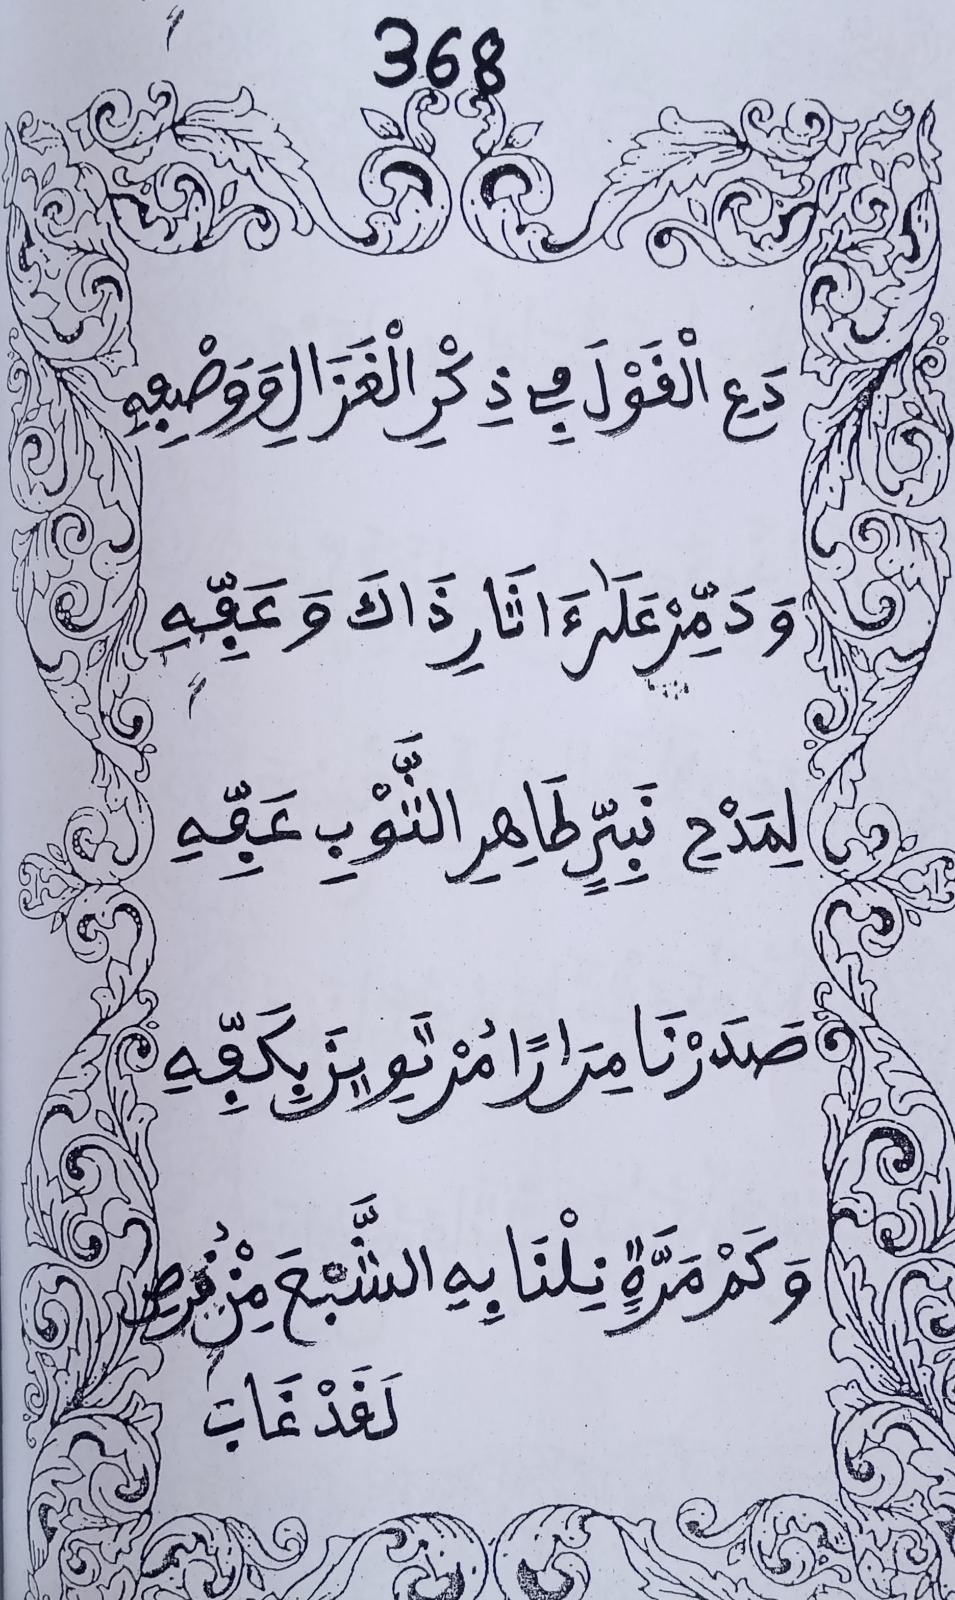 368
دَعِ الْقَوْلَ فِي ذِكْرِ الْغَزَالِ وَوَصْفِهِ
وَدَمِّرْ عَلَىٰ ءَاثَارِ ذَاكَ وَعَفِّهِ
لِمَدْحِ نَبِيٍّ طَاهِرِ الثَّوْبِ عَفِّهِ
صَدَرْنَا مِرَارًا مُرْتَوِينَ بِكَفِّهِ
وَكَمْ مَرَّةٍ نِلْنَا بِهِ الشَّبْعَ مِنْ قُرْصِ
لَقَدْ غَابَ